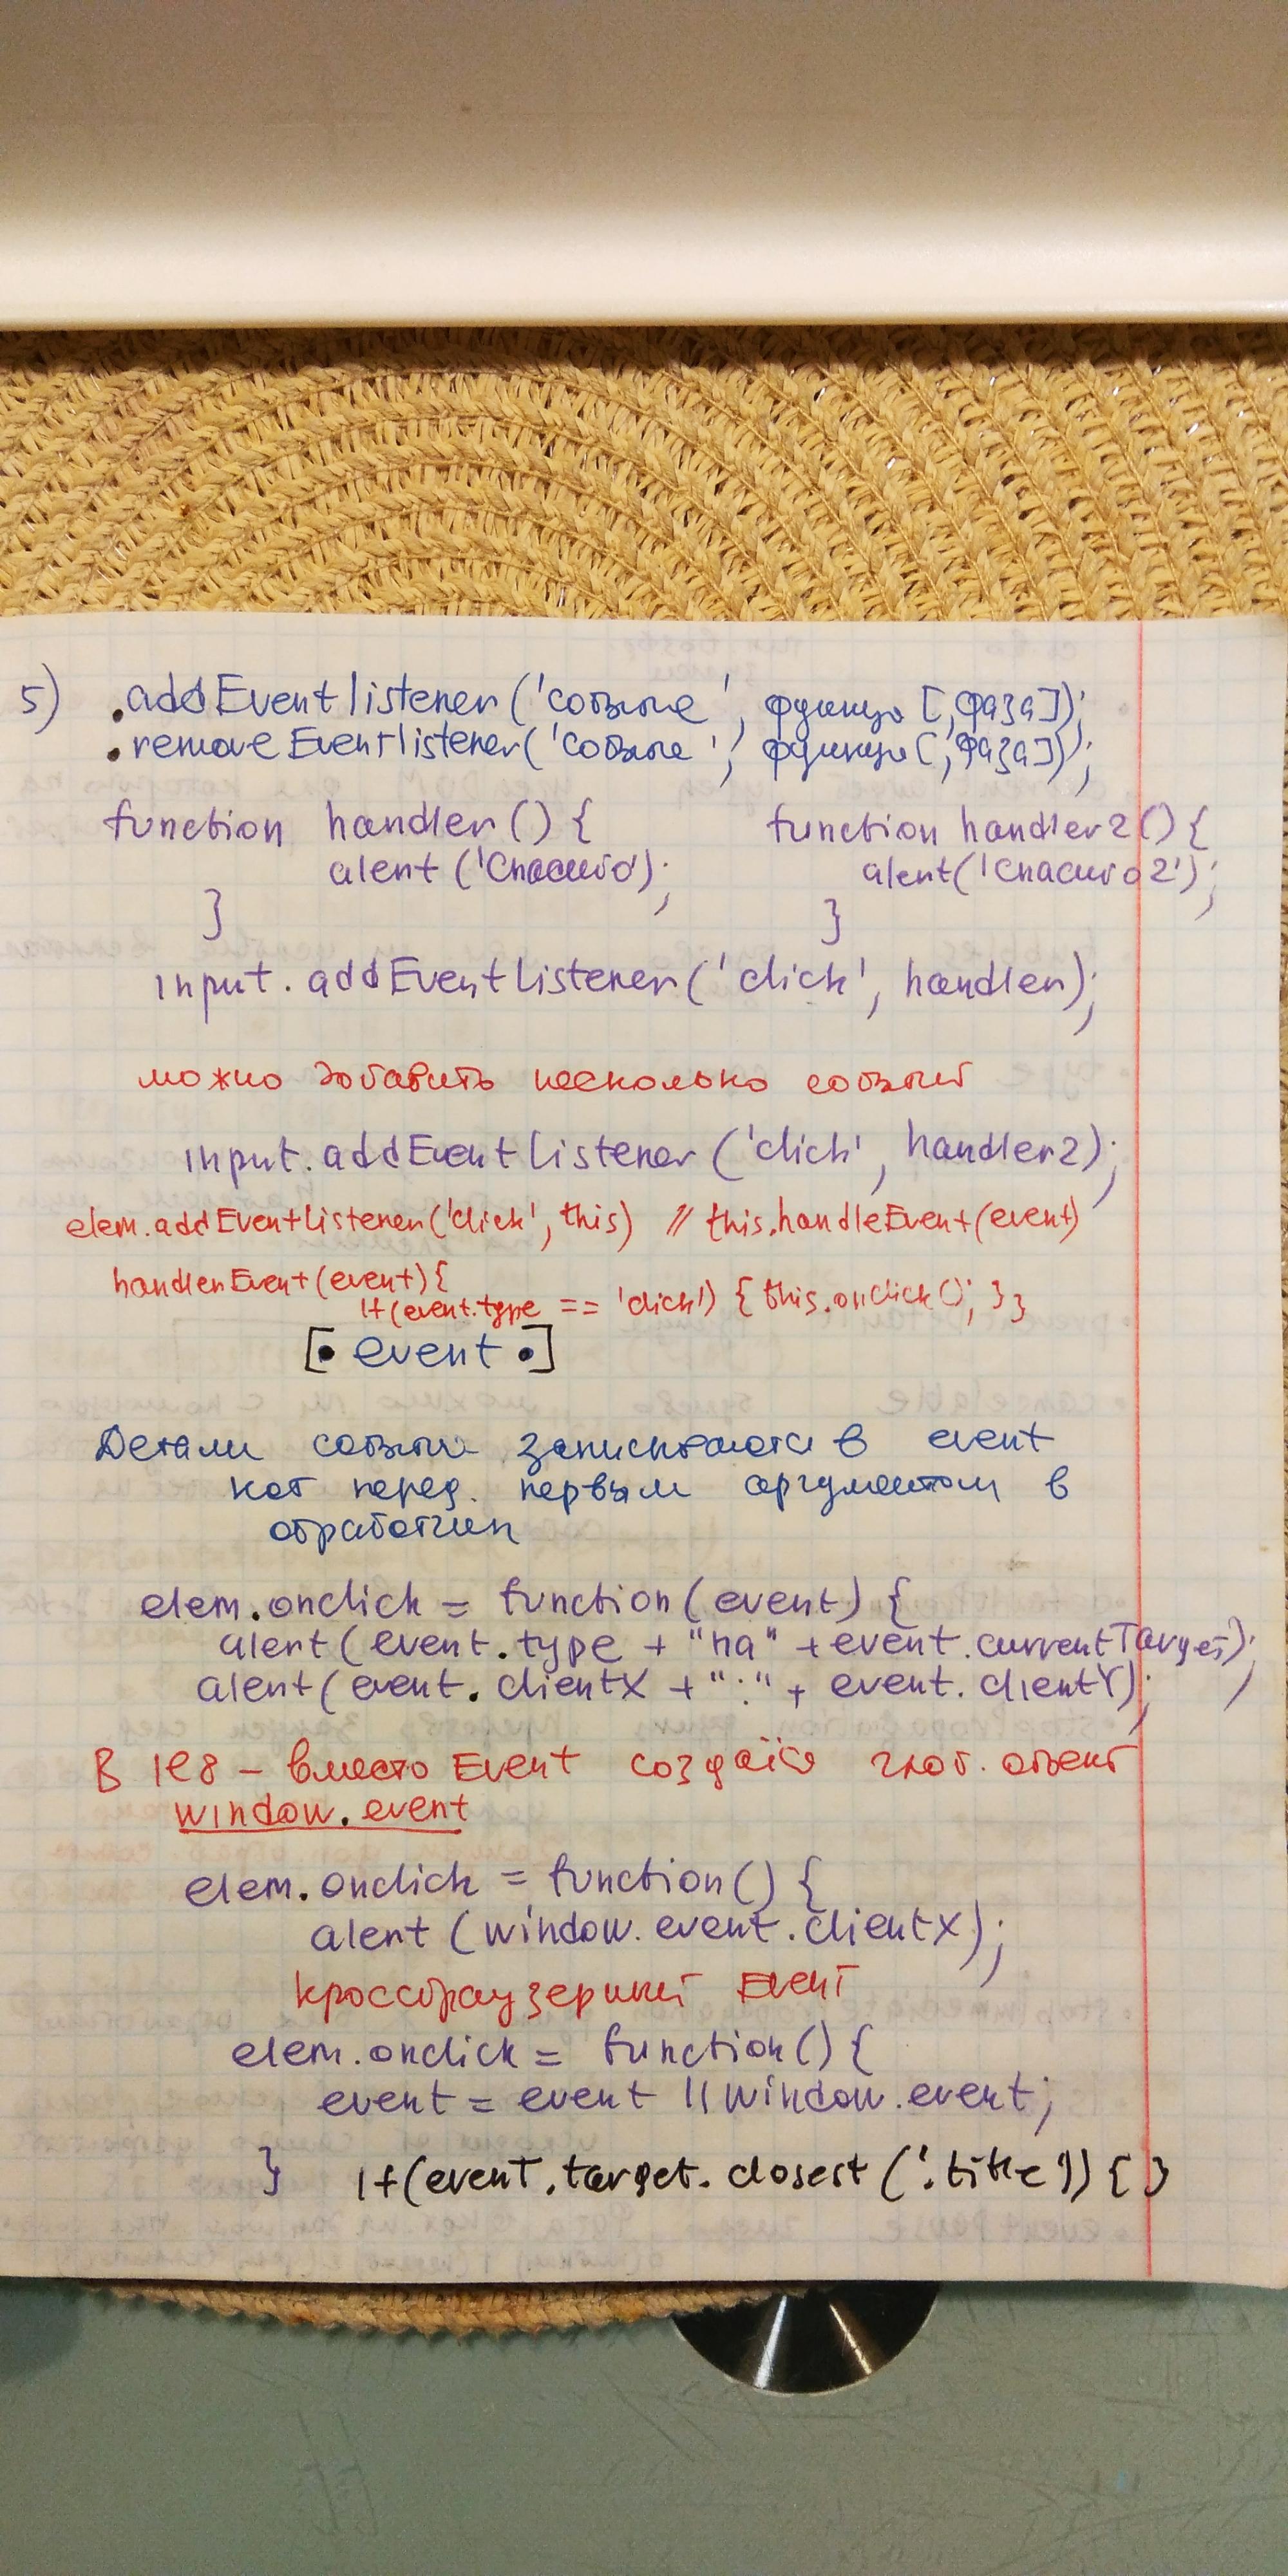 5) .addEventlistener('событие', функция [,фаза]);
.removeEventlistener('событие', функция[,фаза]);
function handler() {
function handler2() {
alert('Спасибо');
alert('Спасибо2');
}
}
input.addEventListener('click', handler);
можно добавить несколько событий
input.addEventListener('click', handler2);
elem.addEventListener('click', this) // this.handleEvent(event)
handlerEvent(event) {
if(event.type == 'click') { this.onclick(); } }
[• event •]
Детали события записываются в event
кот перед. первым аргументом в
обработчик
elem.onclick = function(event) {
alert(event.type + "на" + event.currentTarget);
alert(event.clientX + ":" + event.clientY);
В IE8 – вместо Event создаётся глоб. объект
window.event
elem.onclick = function() {
alert(window.event.clientX);
кроссбраузерный Event
elem.onclick = function() {
event = event || window.event;
} if(event.target.closest('.title')) { }